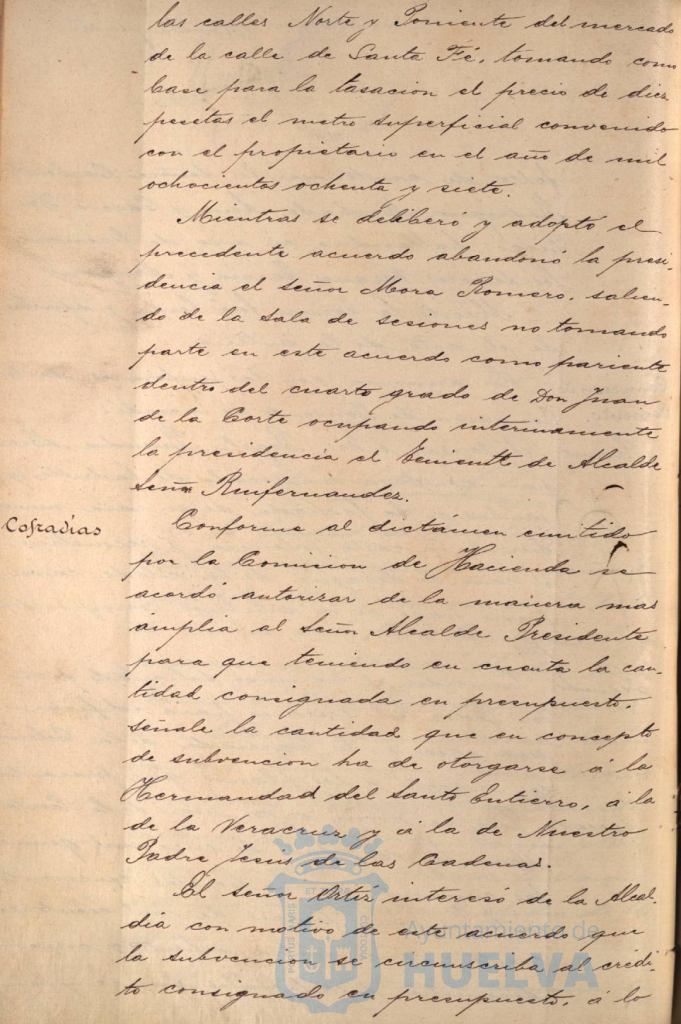 las calles Norte y Poniente del mercado
de la calle de Santa Fé, tomando como
base para la tasacion el precio de diez
pesetas el metro superficial convenido
con el propietario en el año de mil
ochocientos ochenta y siete.
Mientras se deliberó y adoptó el
precedente acuerdo abandonó la presi-
dencia el señor Mora Romero, salien-
do de la sala de sesiones no tomando
parte en este acuerdo como pariente
dentro del cuarto grado de Don Juan
de la Corte ocupando interinamente
la presidencia el Teniente de Alcalde
Señor Ruifernandez.
Cofradías
Conforme al dictámen emitido
por la Comision de Hacienda se
acordó autorizar de la manera mas
ámplia al Señor Alcalde Presidente
para que teniendo en cuenta la can-
tidad consignada en presupuesto,
señale la cantidad que en concepto
de subvencion ha de otorgarse á la
Hermandad del Santo Entierro, á la
de la Veracruz y á la de Nuestro
Padre Jesús de las Cadenas.
El señor Ortiz interesó de la Alcal-
día con motivo de este acuerdo que
la subvencion se circunscriba al crédi-
to consignado en presupuesto, á lo
Ayuntamiento de
HUELVA